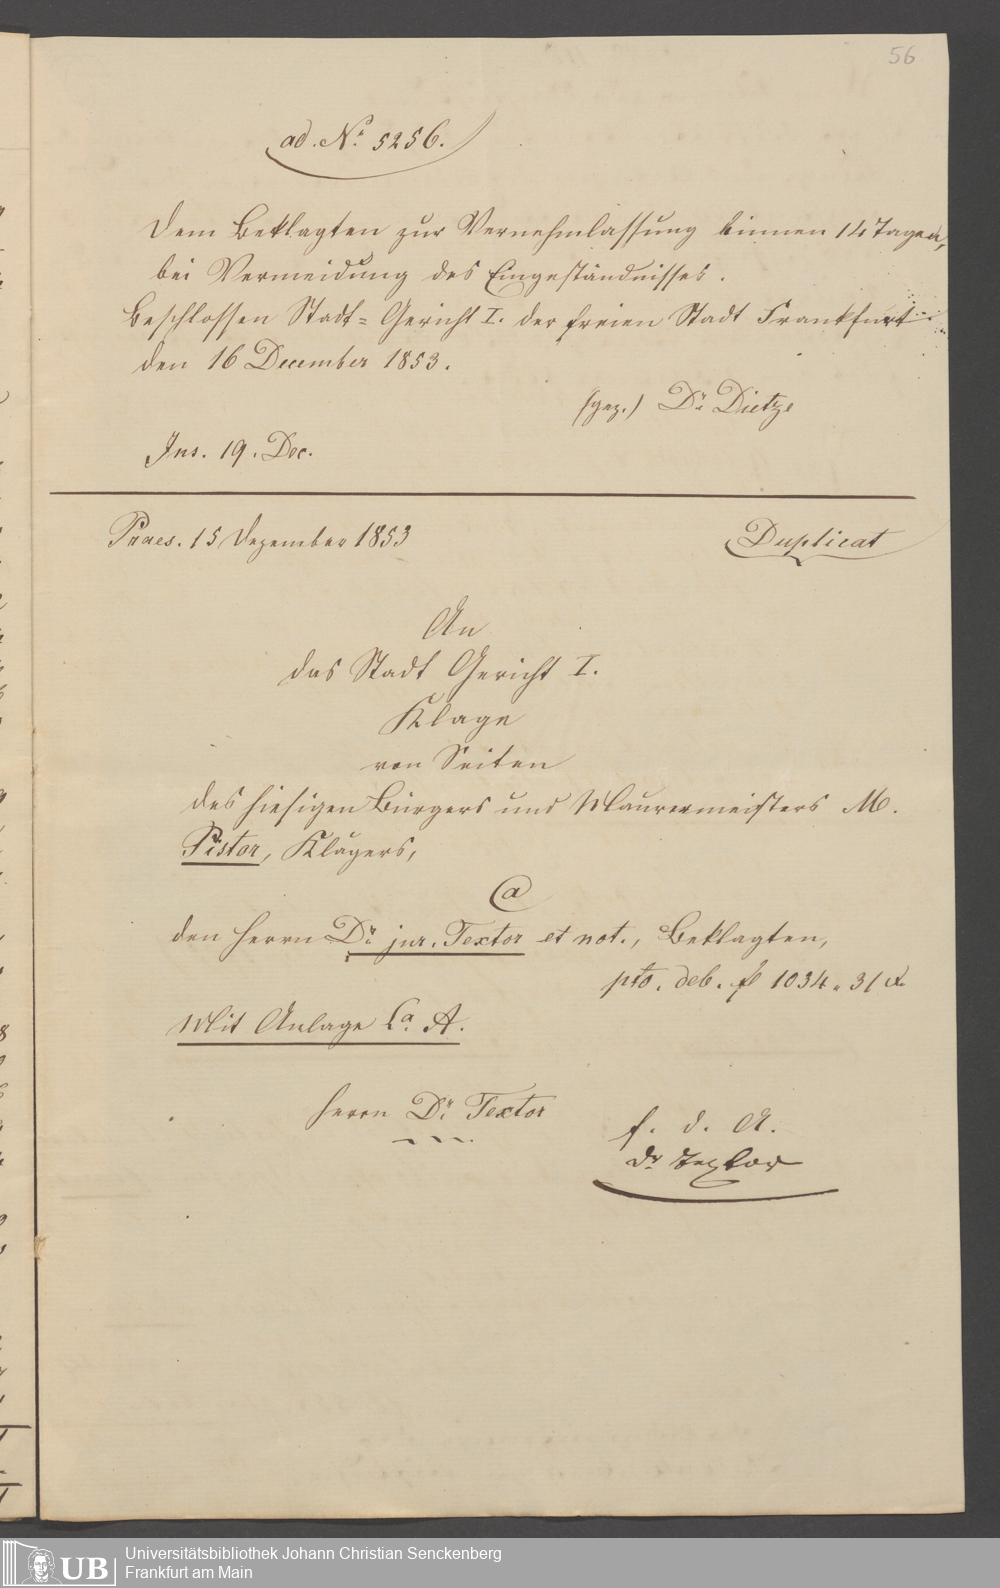 56
ad. No. 5256.
Dem Beklagten zur Vernehmlassung binnen 14 Tagen,
bei Vermeidung des Eingeständnisses.
Beschlossen Stadt-Gericht I. der freien Stadt Frankfurt
den 16 December 1853.
(gez.) Dr. Dietze
Ins. 19. Dec.
Praes. 15 Dezember 1853
Duplicat
An
das Stadt Gericht I.
Klage
von Seiten
des hiesigen Bürgers und Maurermeisters M.
Pistor, Klägers,
Ca
den Herrn Dr. jur. Textor et not., Beklagten,
pto. deb. f 1034. 31 x.
Mit Anlage La. A.
Herrn Dr. Textor
f. d. A.
Dr Textor
UB
Universitätsbibliothek Johann Christian Senckenberg
Frankfurt am Main